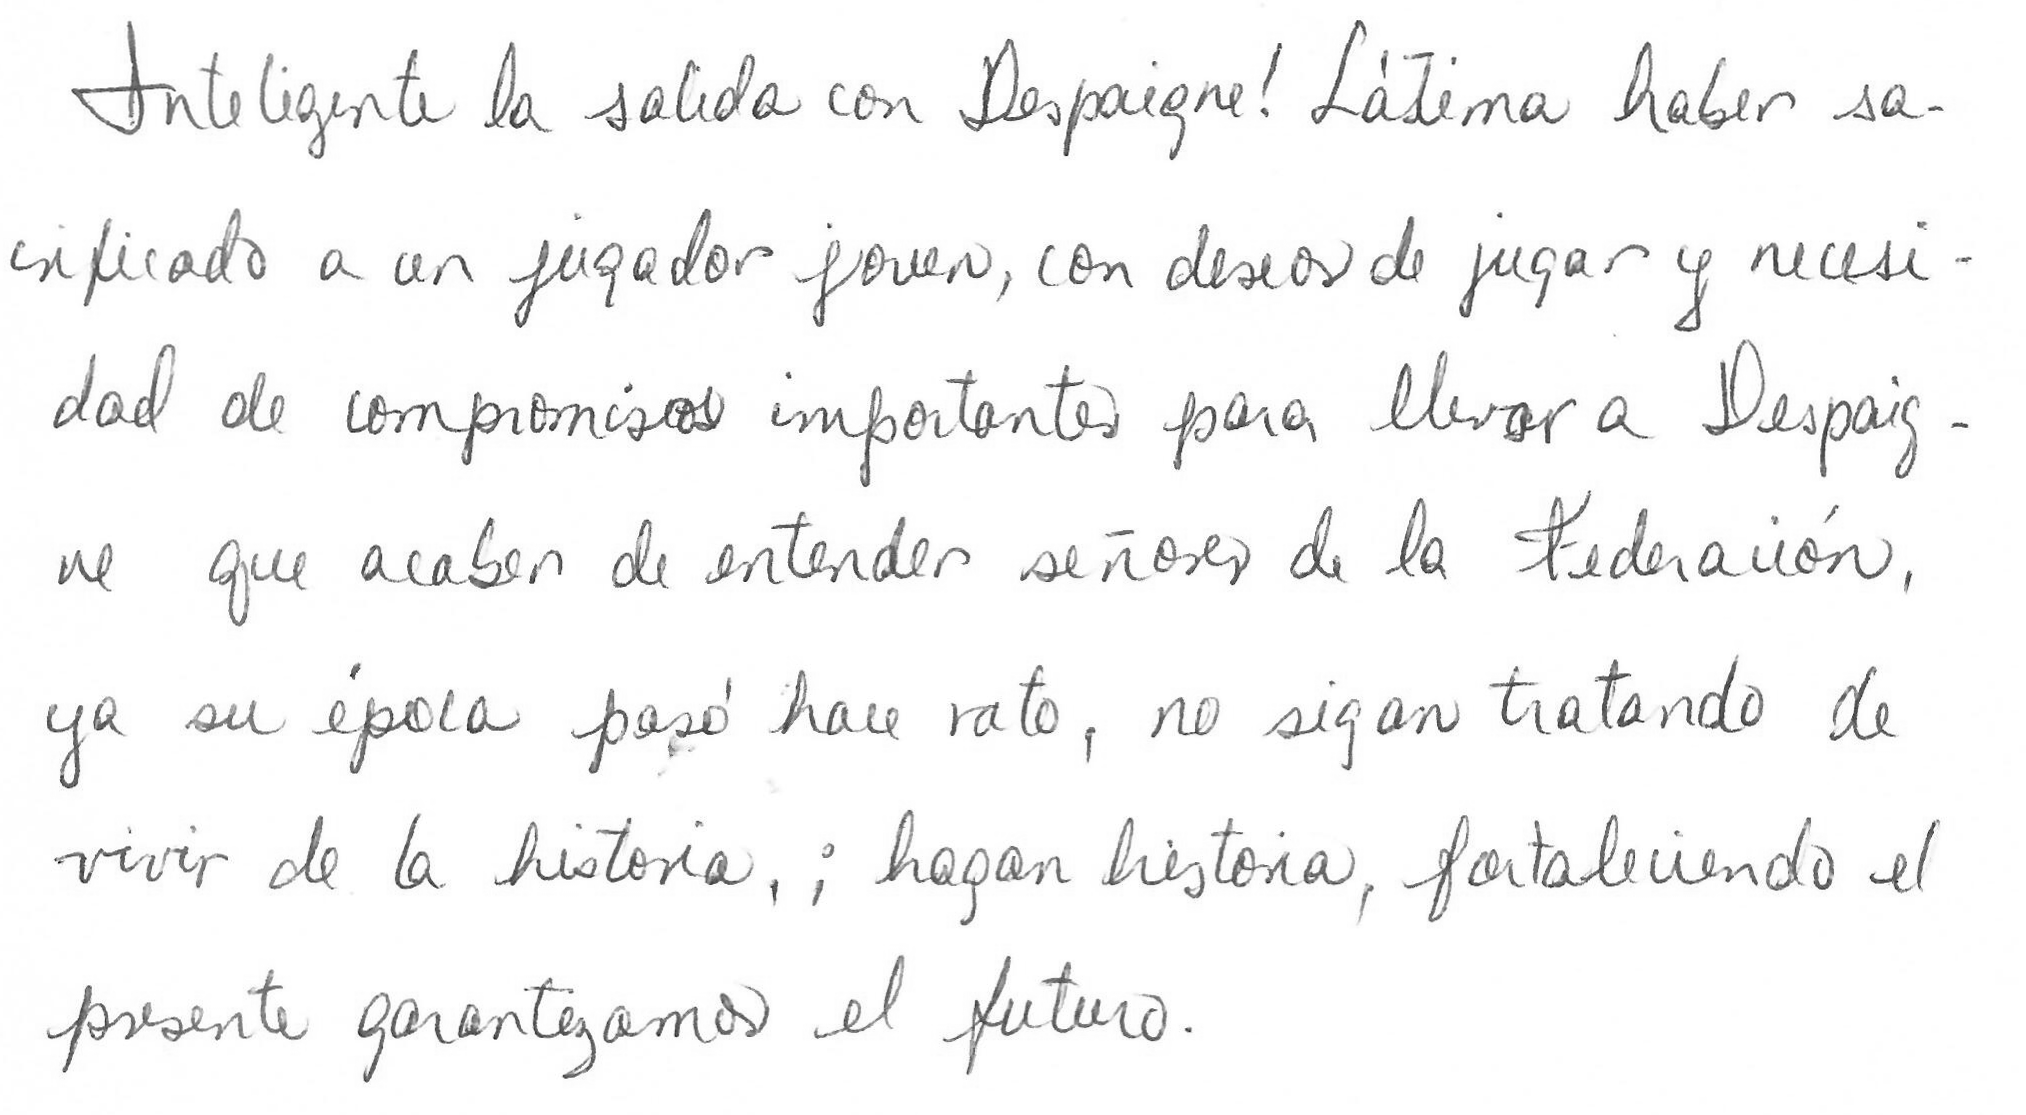 Inteligente la salida con Despaigne! Látima haber sa-
crificado a un jugador joven, con deseos de jugar y necesi-
dad de compromisos importantes para llevar a Despaig-
ne que acaben de entender señores de la Federación,
ya su época pasó hace rato, no sigan tratando de
vivir de la historia, ; hagan historia, fortaleciendo el
presente garantizamos el futuro.